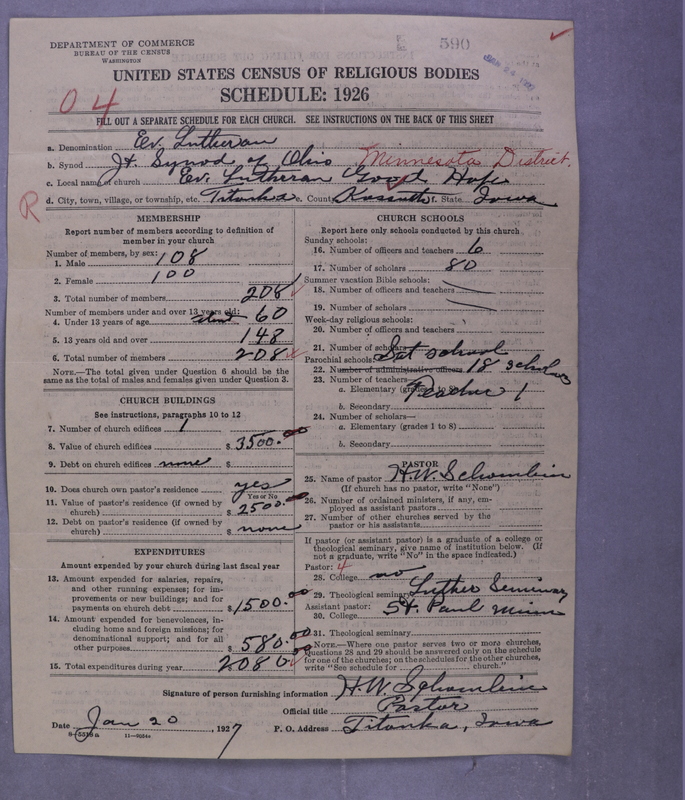 DEPARTMENT OF COMMERCE
BUREAU OF THE CENSUS
WASHINGTON
590
UNITED STATES CENSUS OF RELIGIOUS BODIES
SCHEDULE: 1926
04
FILL OUT A SEPARATE SCHEDULE FOR EACH CHURCH. SEE INSTRUCTIONS ON THE BACK OF THIS SHEET
a. Denomination Ev. Lutheran
b. Synod Jt Synod of Ohio Minnesota District.
c. Local name of church Ev. Lutheran Good Hope
d. City, town, village, or township, etc. Titonka e. County Kossuth f. State Iowa
R
MEMBERSHIP
Report number of members according to definition of member in your church
Number of members, by sex:
1. Male 108
2. Female 100
3. Total number of members 208
Number of members under and over 13 years old:
4. Under 13 years of age 60
5. 13 years old and over 148
6. Total number of members 208
NOTE.—The total given under Question 6 should be the same as the total of males and females given under Question 3.
CHURCH BUILDINGS
See instructions, paragraphs 10 to 12
7. Number of church edifices 1
8. Value of church edifices $ 3500.00
9. Debt on church edifices none
10. Does church own pastor's residence yes
Yes or No
11. Value of pastor's residence (if owned by church) $ 2500.00
12. Debt on pastor's residence (if owned by church) $ none
EXPENDITURES
Amount expended by your church during last fiscal year
13. Amount expended for salaries, repairs, and other running expenses; for improvements or new buildings; and for payments on church debt $ 1500.00
14. Amount expended for benevolences, including home and foreign missions; for denominational support; and for all other purposes $ 580.00
15. Total expenditures during year 2080.00
CHURCH SCHOOLS
Report here only schools conducted by this church
Sunday schools:
16. Number of officers and teachers 6
17. Number of scholars 80
Summer vacation Bible schools:
18. Number of officers and teachers
19. Number of scholars
Week-day religious schools:
20. Number of officers and teachers
21. Number of scholars
Parochial schools: Sat school
22. Number of administrative officers 18 scholars
23. Number of teachers—
a. Elementary (grades 1 to 8) Teacher 1
b. Secondary
24. Number of scholars—
a. Elementary (grades 1 to 8)
b. Secondary
PASTOR
25. Name of pastor H.W. Schomburg
(If church has no pastor, write "None")
26. Number of ordained ministers, if any, employed as assistant pastors
27. Number of other churches served by the pastor or his assistants
If pastor (or assistant pastor) is a graduate of a college or theological seminary, give name of institution below. (If not a graduate, write "No" in the space indicated.)
Pastor: 4
28. College no
29. Theological seminary Luther Seminary
Assistant pastor: St. Paul Minn
30. College
31. Theological seminary
NOTE.—Where one pastor serves two or more churches, Questions 28 and 29 should be answered only on the schedule for one of the churches; on the schedules for the other churches, write "See schedule for church."
Signature of person furnishing information H.W. Schomburg
Official title Pastor
Date Jan 20 1927
P. O. Address Titonka, Iowa
11—9054a